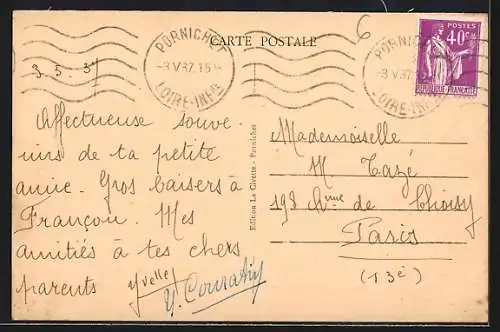 6
CARTE POSTALE
PORNICHET
-3 V 37 15
LOIRE-INFRE
PORNICHET
-3 V 37
LOIRE-INFRE
POSTES
40c
REPUBLIQUE FRANÇAISE
3.5.37
Affectueuse souve-
nirs de ta petite
amie. Gros baisers à
Françou. Mes
amitiés à tes chers
parents Yvelley
Y. Couratin
Edition La Civette - Pornichet
Mademoiselle
M Tazé
193 Ave de Choisy
Paris
(13e)